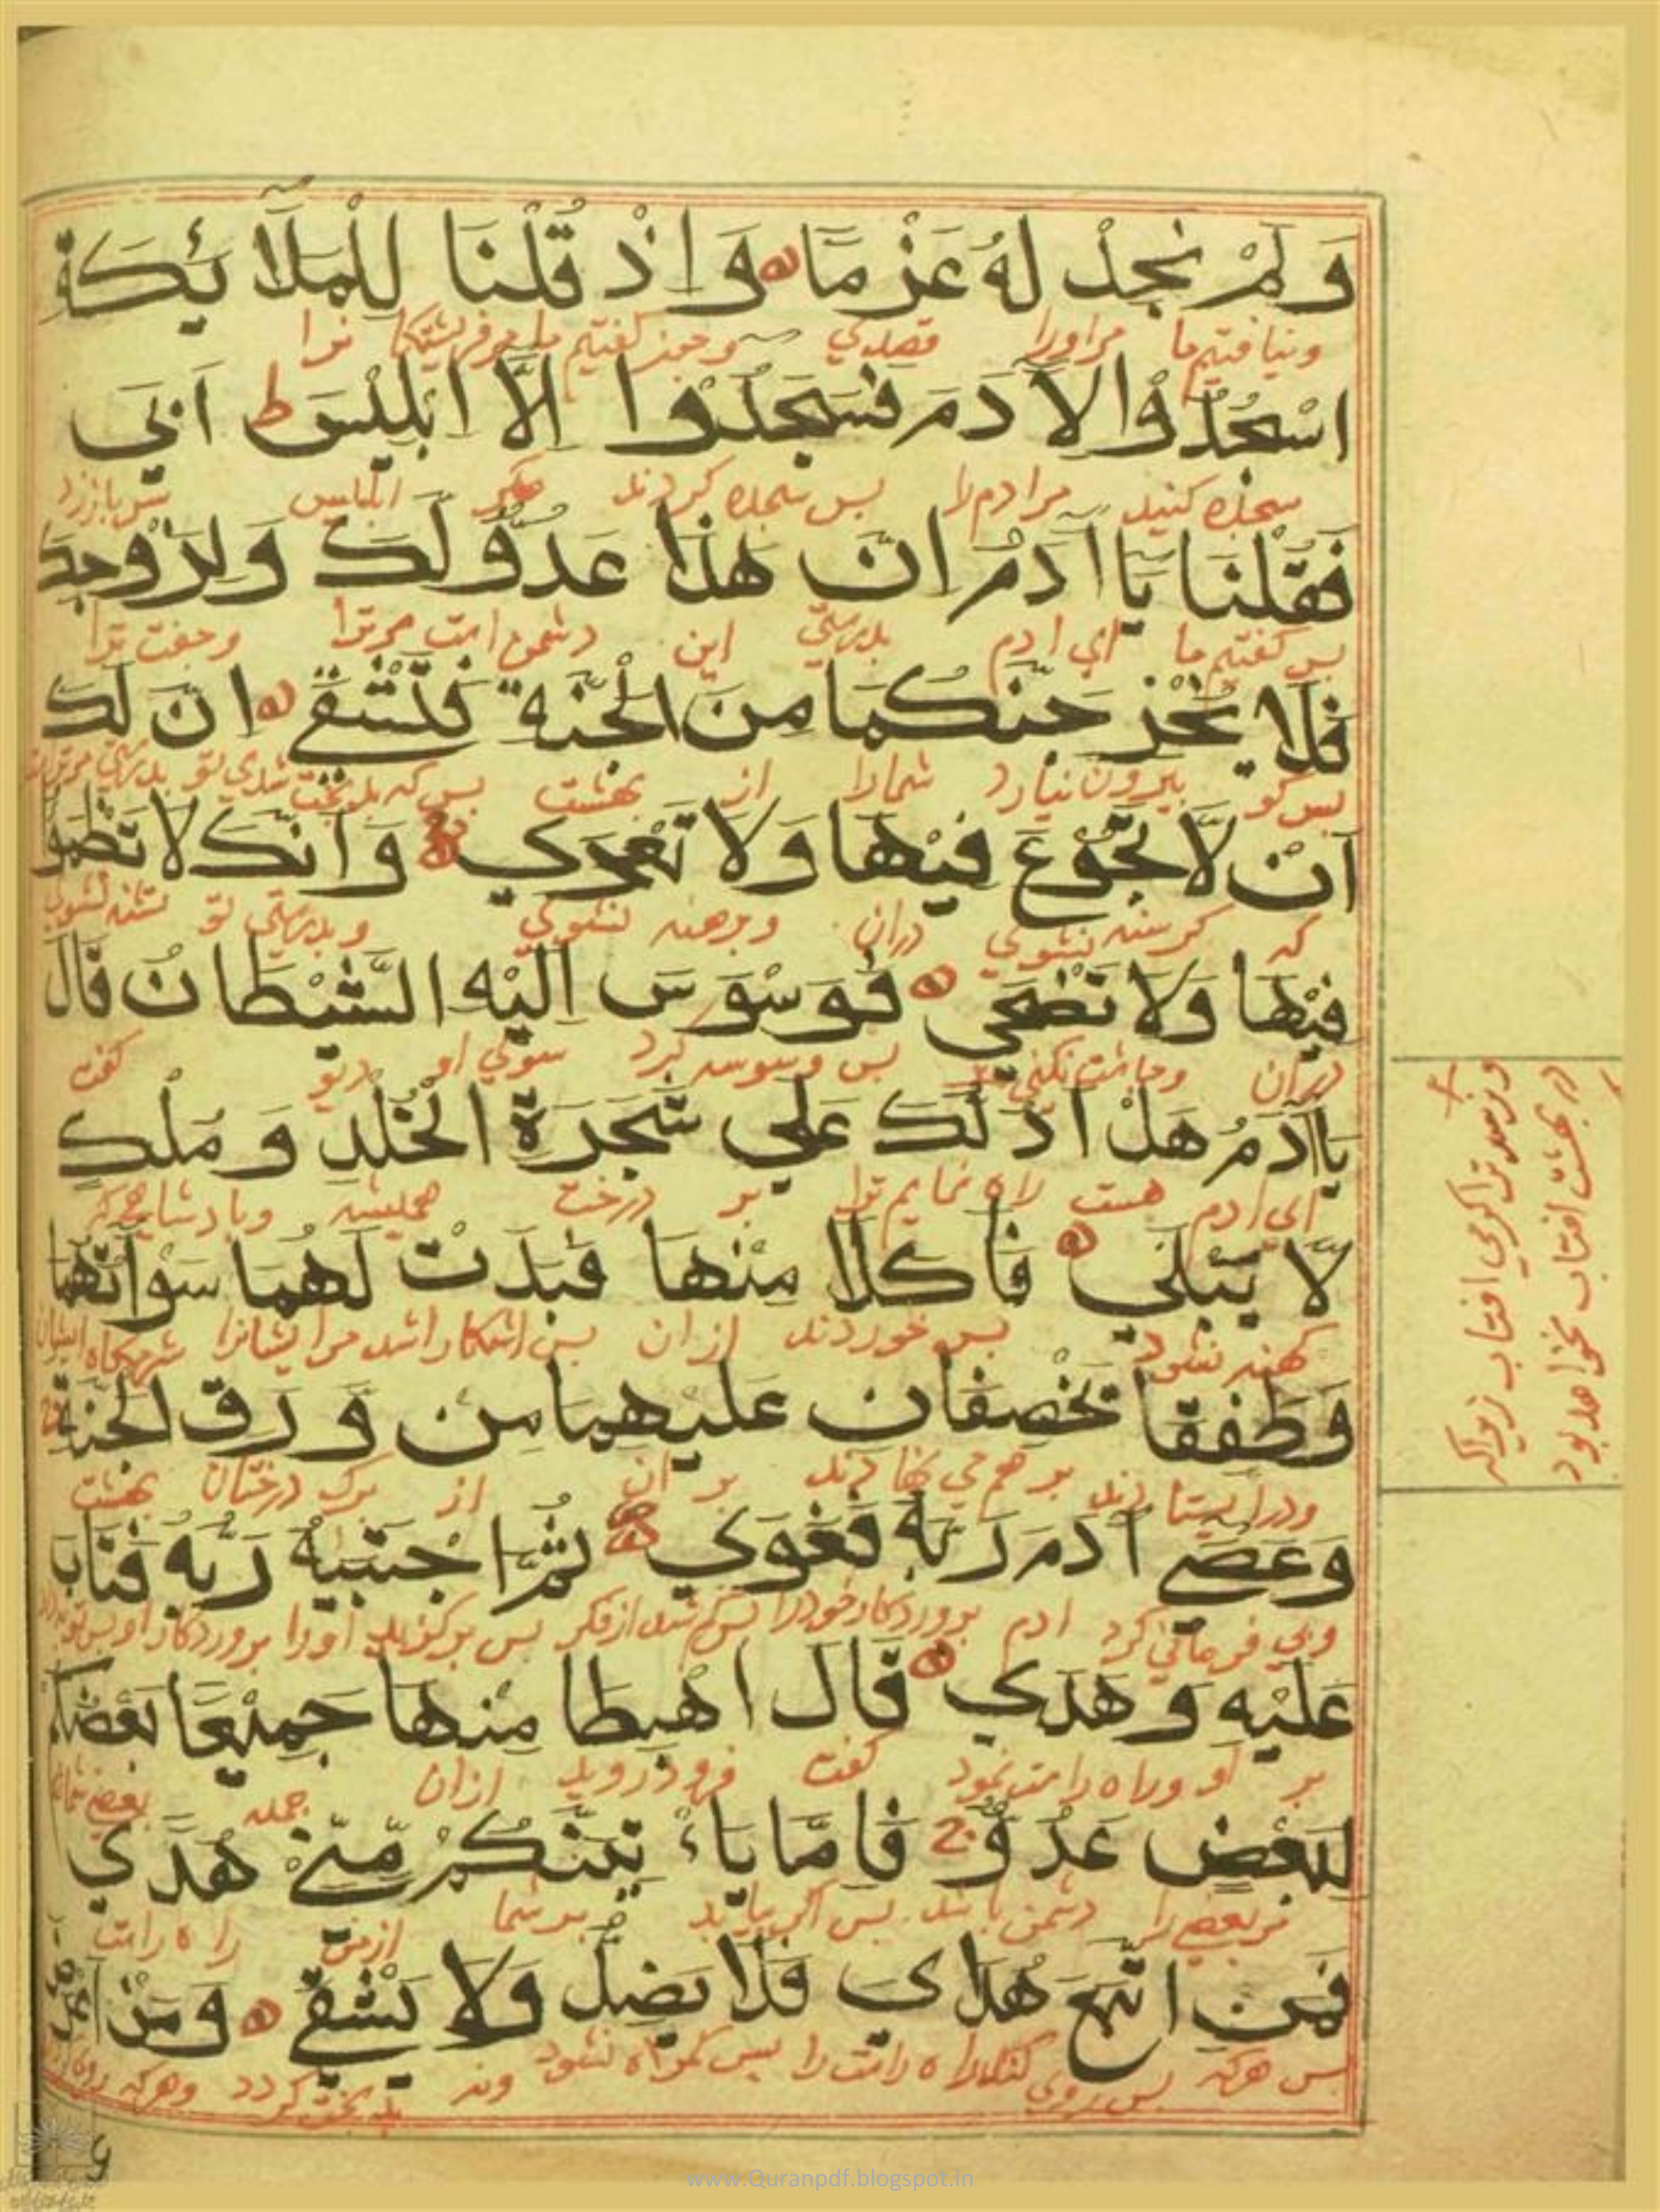 وَلَمْ نَجِدْ لَهُ عَزْمًا وَاِذْ قُلْنَا لِلْمَلَآئِكَةِ
ونیافتیم ما مراورا قصدی وچون گفتیم ما مرفریشتگانرا
اسْجُدُوْا لِاٰدَمَ فَسَجَدُوْا اِلَّا اِبْلِيْسَ ط اَبٰي
سجده کنید مرادم را بس سجده کردند مگر ابلیس
فَقُلْنَا يَا اٰدَمُ اِنَّ هٰذَا عَدُوٌّ لَكَ وَلِزَوْجِكَ
بس گفتیم ما ای ادم بدرستی این دشمن است مرترا وجفت ترا
فَلَا يُخْرِجَنَّكُمَا مِنَ الْجَنَّةِ فَتَشْقٰي اِنَّ لَكَ
بس گو بیرون نیارد شمارا از بهشت بس که بدبخت شوی تو بدرستی
اَنْ لَّا تَجُوْعَ فِيْهَا وَلَا تَعْرٰي وَاَنَّكَ لَا تَظْمَؤُ
که گرسنه نشوی دران وبرهنه نشوی وبدرستی تو تشنه نشوی
فِيْهَا وَلَا تَضْحٰي فَوَسْوَسَ اِلَيْهِ الشَّيْطَانُ قَالَ
دران وچاشت نکنی بس وسوسه کرد سوی او دیو گفت
يَا اٰدَمُ هَلْ اَدُلُّكَ عَلٰي شَجَرَةِ الْخُلْدِ وَمُلْكٍ
ای ادم هست راه نمایم ترا بر درخت همیشه وبادشاهی که
لَّا يَبْلٰي فَاَكَلَا مِنْهَا فَبَدَتْ لَهُمَا سَوْاٰتُهُمَا
کهنه نشود بس خوردند ازان بس اشکارا شد مرایشانرا شرمگاه ایشان
وَطَفِقَا يَخْصِفَانِ عَلَيْهِمَا مِنْ وَرَقِ الْجَنَّةِ
ودرایستادند برهم می نهادند بر ان از برگ درختان بهشت
وَعَصٰي اٰدَمَ رَبَّهُ فَغَوٰي ثُمَّ اجْتَبٰيهُ رَبُّهُ فَتَابَ
وبی فرمانی کرد ادم بروردکار خودرا بس گم شد ازفکر بس برگزید اورا بروردکار او بس توبه داد
عَلَيْهِ وَهَدٰي قَالَ اهْبِطَا مِنْهَا جَمِيْعًا بَعْضُكُمْ
بر او وراه راست نمود گفت فرود روید ازان جمله بعضی شما
لِبَعْضٍ عَدُوٌّ ج فَاِمَّا يَاْتِيَنَّكُمْ مِّنِّيْ هُدًي
مربعضی را دشمن باشد بس اگر بیاید بر شما ازمن راه راست
فَمَنِ اتَّبَعَ هُدَايَ فَلَا يَضِلُّ وَلَا يَشْقٰي وَمَنْ اَعْرَضَ
بس هرکه بس روی کند راه راست را بس گمراه نشود ونه بدبخت گردد وهرکه
ونرسد ترا گرمی افتاب زیراکه
در بهشت افتاب نخواهد بود
www.Quranpdf.blogspot.in